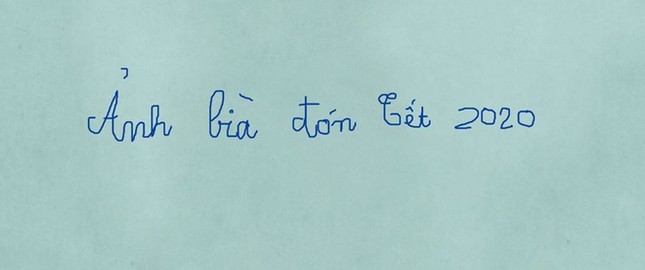 Ảnh bià đón Tết 2020